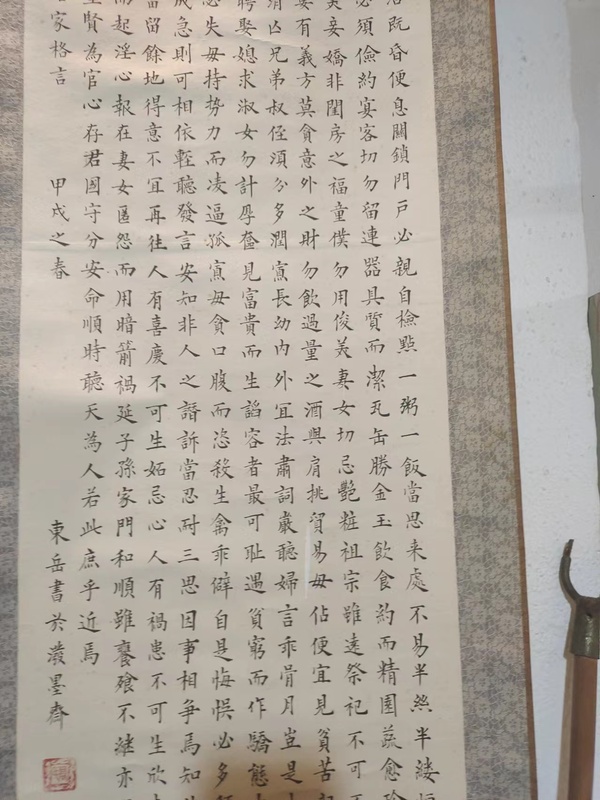 既昏便息關鎖門戶必親自檢點一粥一飯當思來處不易半絲半縷
必須儉約宴客切勿留連器具質而潔瓦缶勝金玉飲食約而精園蔬愈珍
美妾嬌非閨房之福童僕勿用俊美妻女切忌艷粧祖宗雖遠祭祀不可
要有義方莫貪意外之財勿飲過量之酒與肩挑貿易毋佔便宜見貧苦
凶兄弟叔侄須分多潤寡長幼內外冝法肅詞嚴聽婦言乖骨月豈是
聘娶媳求淑女勿計厚奩見富貴而生諂容者最可耻遇貧窮而作驕態
失毋持勢力而凌逼孤寡毋貪口腹而恣殺生禽乖僻自是悔悮必多
成急則可相依輊聽發言安知非人之譖訴當忍耐三思因事相爭焉知
留餘地得意不冝再往人有喜慶不可生妬忌心人有禍患不可生欣
而起淫心報在妻女匿怨而用暗箭禍延子孫家門和順雖饔飧不継亦
聖賢為官心存君國守分安命順時聽天為人若此庶乎近焉
家格言 甲戌之春 東岳書於潑墨齋